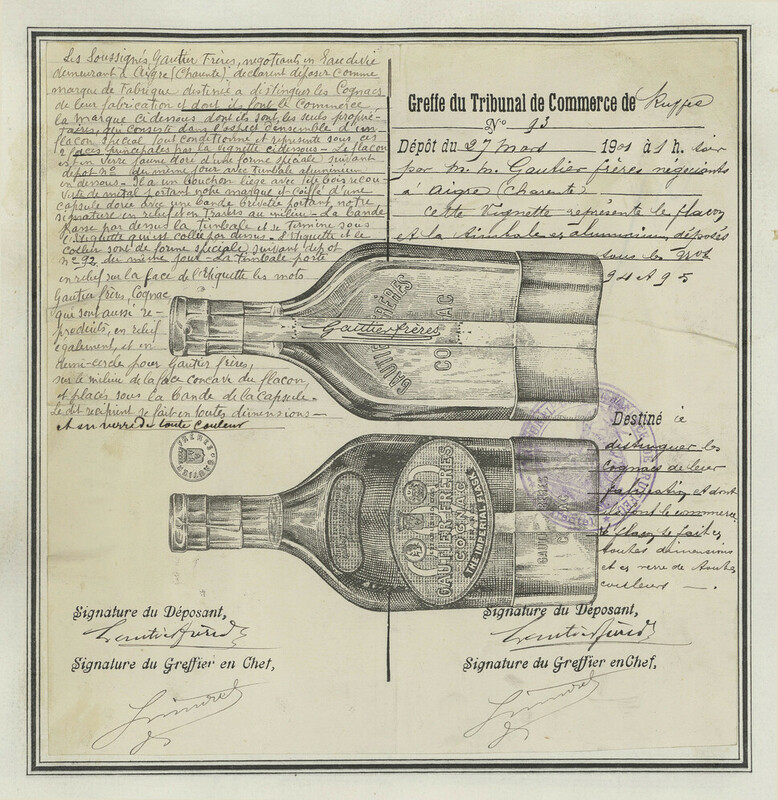 Les Soussignés, Gautier Frères, negotiants en Eau de Vie
demeurant à Aigre (Charente) declarent déposer comme
marque de Fabrique destinée a distinguer les Cognacs
de leur fabrication et dont ils font le Commerce,
la marque ci dessous dont ils sont les seuls proprié-
taires, qui consiste dans l'aspect d'ensemble d'un
flacon special tout conditionné et représenté sous ces
2 faces principales par la vignette ci dessous - Le flacon
est en verre jaune doré d'une forme speciale suivant
depot nº du même jour avec timbale aluminium
en dessous - Il a un bouchon liège avec tête bois recou-
verte de metal portant notre marque et coiffé d'une
capsule dorée avec une bande brevetée portant notre
signature en relief en travers au milieu - La bande
passe par dessus la timbale et se termine sous
l'Etiquette qui est collée par dessus - l'Etiquette et le
collier sont de forme spéciale suivant depot
nº 92 du même jour - La timbale porte
en relief sur la face de l'Etiquette les mots
Gautier frères, Cognac
qui sont aussi re-
produits, en relief
egalement, et en
demi-cercle pour Gautier frères,
sur le milieu de la face concave du flacon
et placés sous la bande de la capsule -
Le dit récipient se fait en toutes dimensions -
et en verre de toute couleur
Greffe du Tribunal de Commerce de Ruffec
Nº 93
Dépôt du 27 Mars 1901 à 1 h. soir
par M. M. Gautier frères négociants
à Aigre (Charente)
Cette Vignette représente le flacon
et la timbale en aluminium, déposés
sous les Nos
94 & 95
GAUTIER FRÈRES
COGNAC
Gautier frères
FRÈRES GAUTIER
GAUTIER FRÈRES
COGNAC
THE IMPERIAL FLASK
GAUTIER FRÈRES
COGNAC
Destiné à
distinguer les
cognacs de leur
fabrication et dont
ils font le commerce
le flacon se fait en
toutes dimensions
et en verre de toutes
couleurs -
Signature du Déposant,
Gautier frères
Signature du Greffier en Chef,
Signature du Déposant,
Gautier frères
Signature du Greffier en Chef,